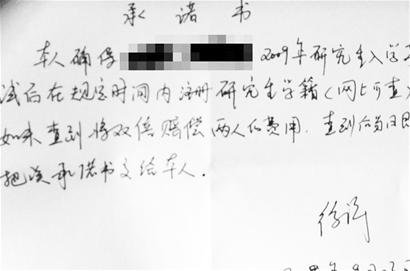 承诺书
本人确保 2009年研究生入学
试后在规定时间内注册研究生学籍(网上可查)
如未查到将双倍赔偿两人的费用.查到后当日即
把该承诺书交给本人.
徐